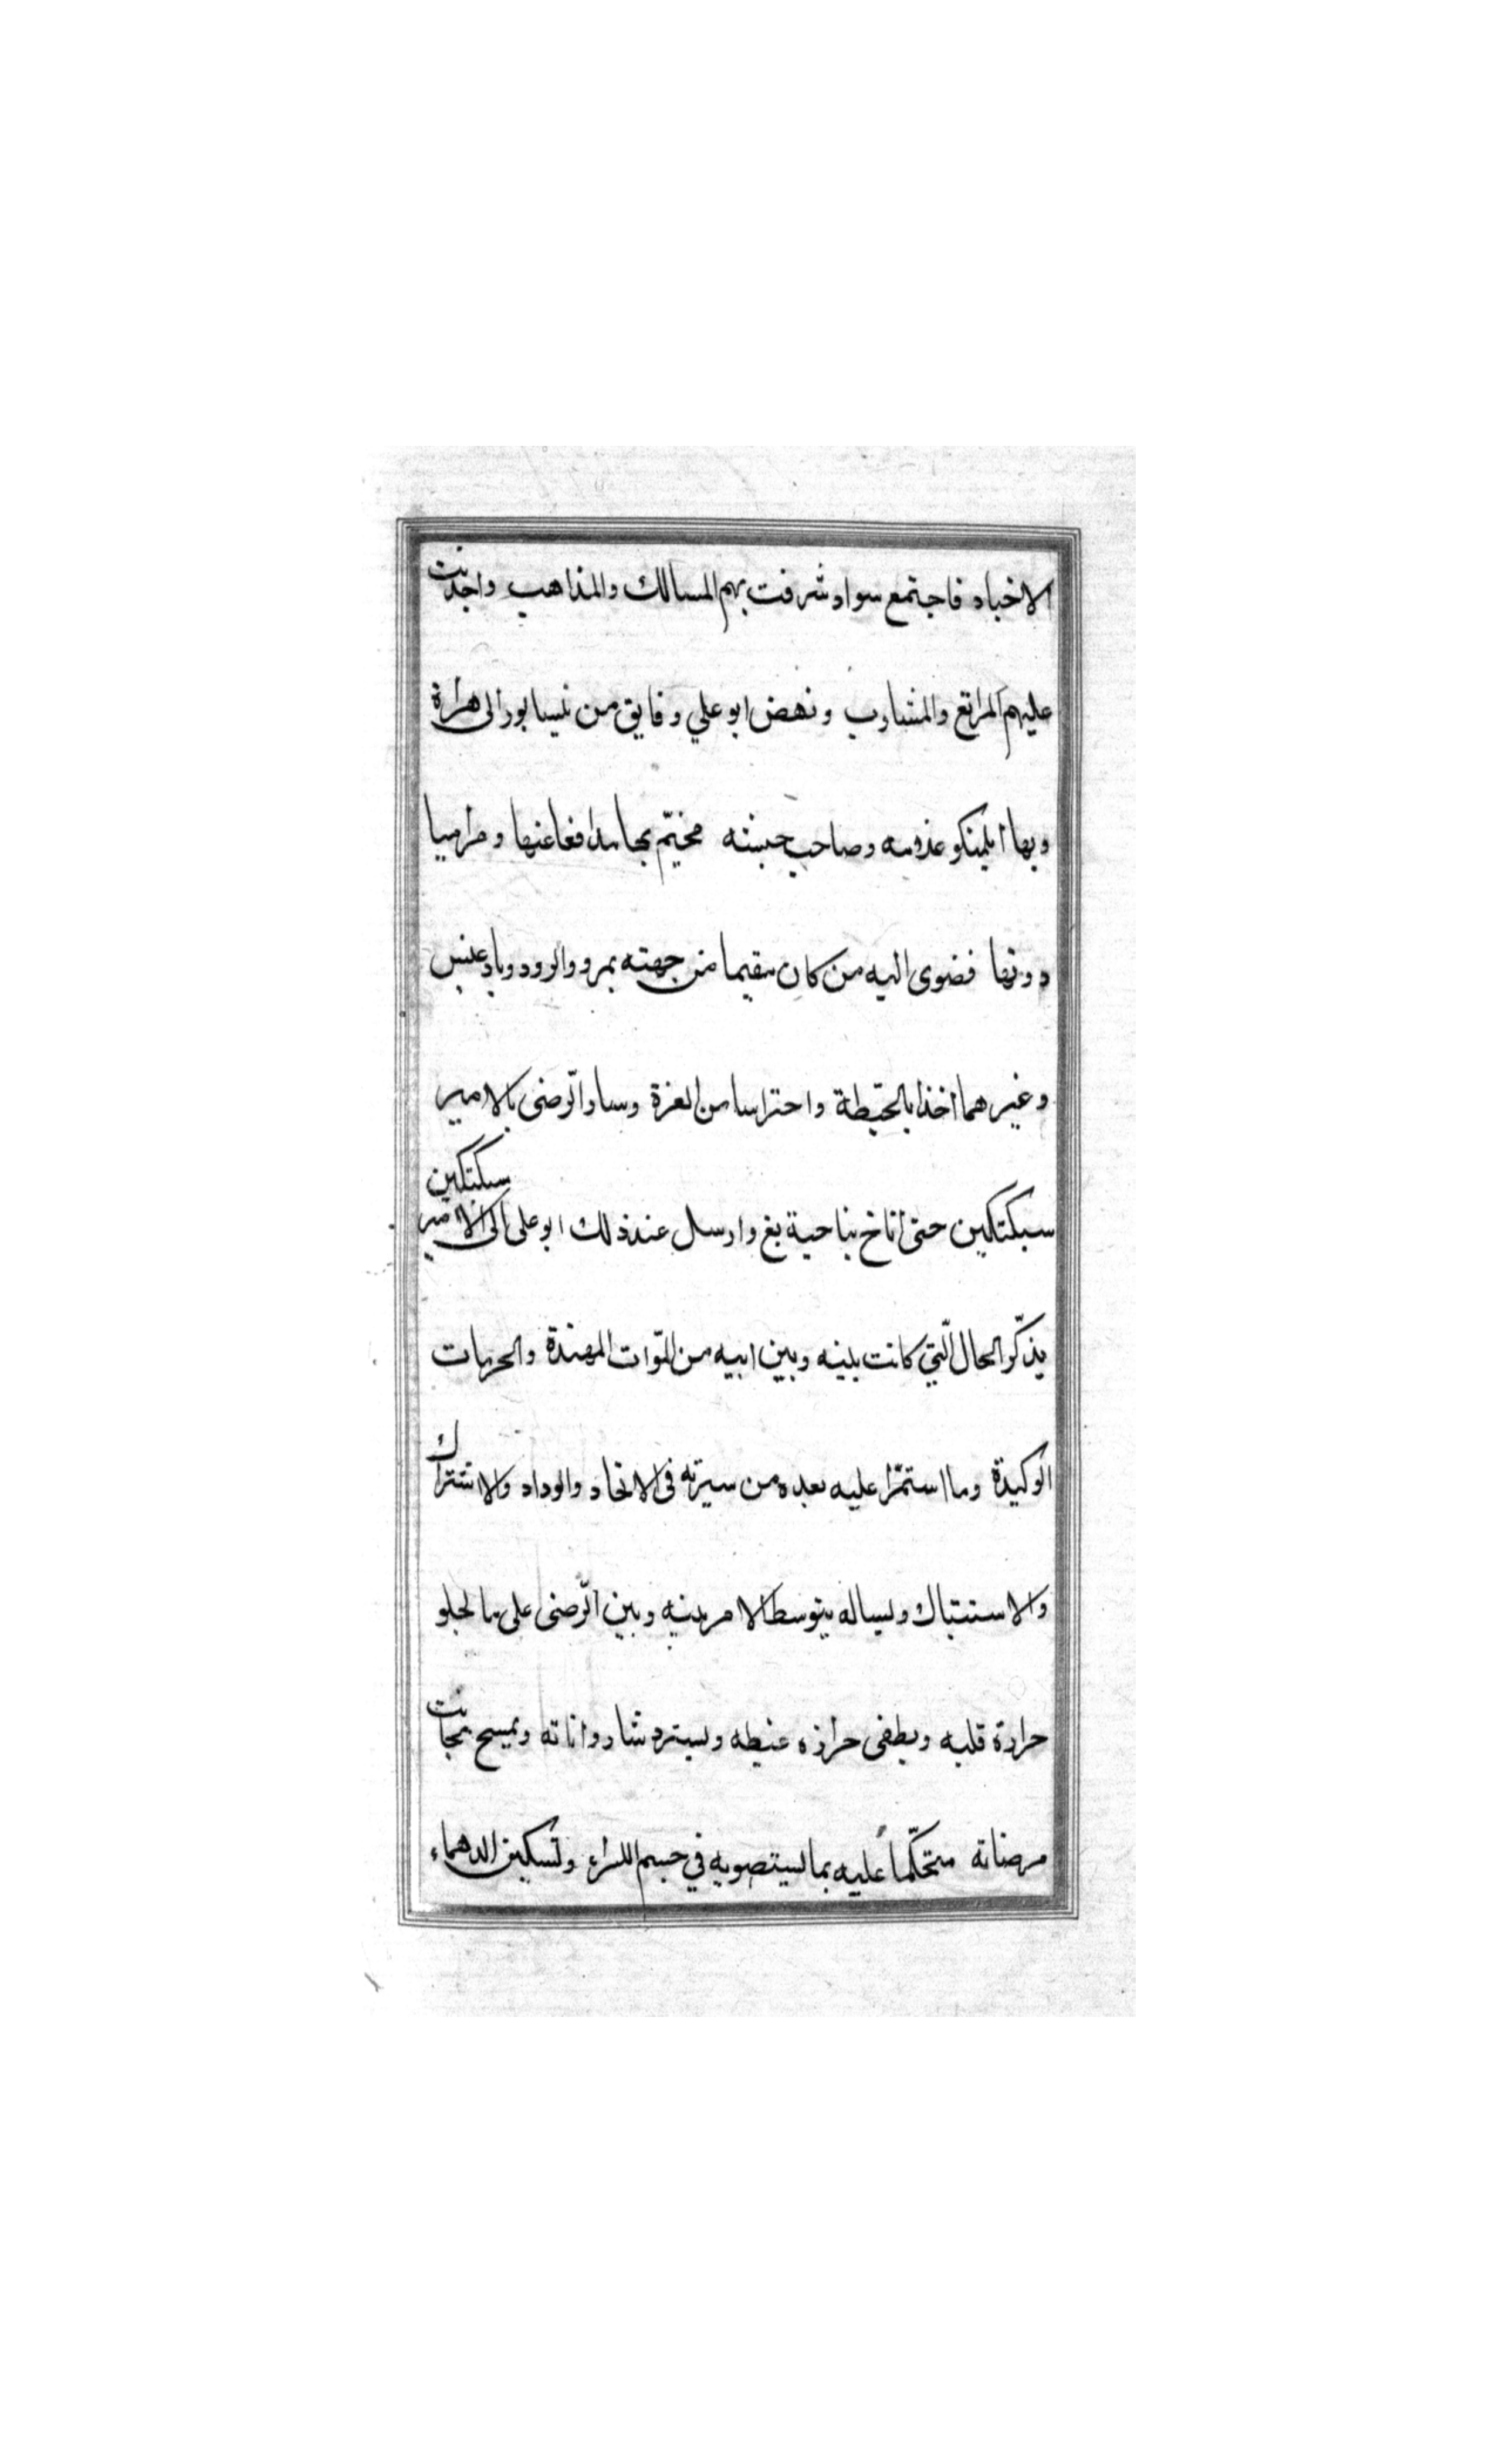 الاخباد فاجتمع سواد شرفت بهم المسالك والمذاهب واجدبت
عليهم المراتع والمشارب ونهض ابو علي وفايق من نيسابور الى هراة
وبها ايلمنكو غذمه وصاحب جيشه مخيّم بها مدافعا عنها ومراميا
دونها فضوى اليه من كان مقيما من جهته بمرو والرود وبادغيس
وغيرهما اخذا بالحيّطة واحتراسا من الغزة وسار الرّضى بالامير
سبكتكين حتى اناخ بناحية بغ وارسل عند ذلك ابو على الى الامير سبكتكين
يذكّر الحال الّتي كانت بينه وبين ابيه من الموّات الممهندة والحرمات
الوكيدة وما استمرّ عليه بعده من سيرته فى الاتحاد والوداد والاشتراك
والاشتباك ويساله بتوسط الامر بينه وبين الرّضى على ما يجلو
حرارة قلبه ويطفى حرازه غيظه ويسترد شارد اناته ويمسح بجانب
مرضاته متحكّما عليه بما يستصوبه في حسم الداء وتسكين الدهماء